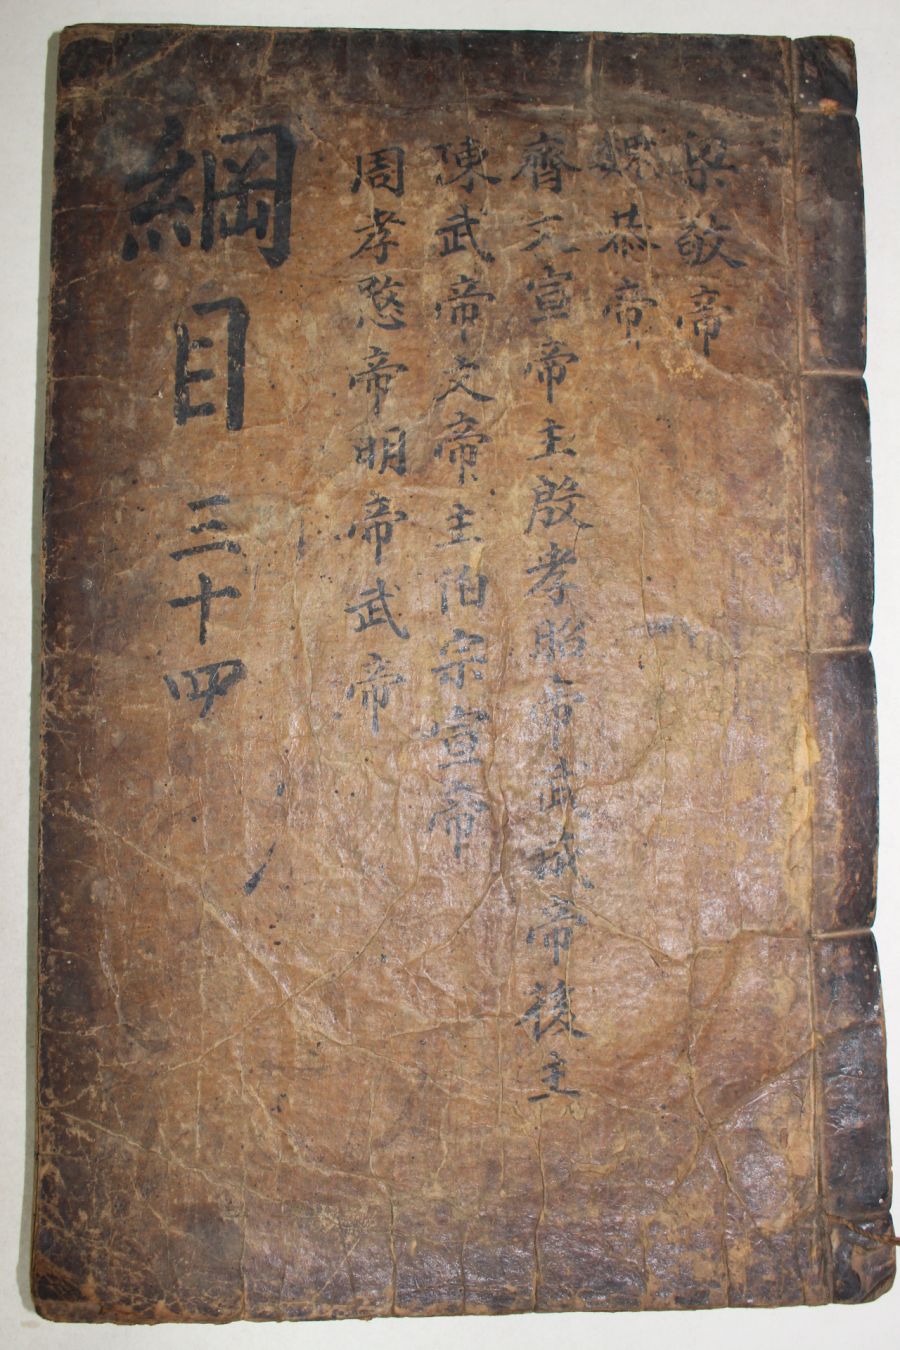 梁敬帝
魏恭帝
齊文宣帝主殷孝昭帝武城帝後主
陳武帝文帝主伯宗宣帝
周孝愍帝明帝武帝
綱目 三十四